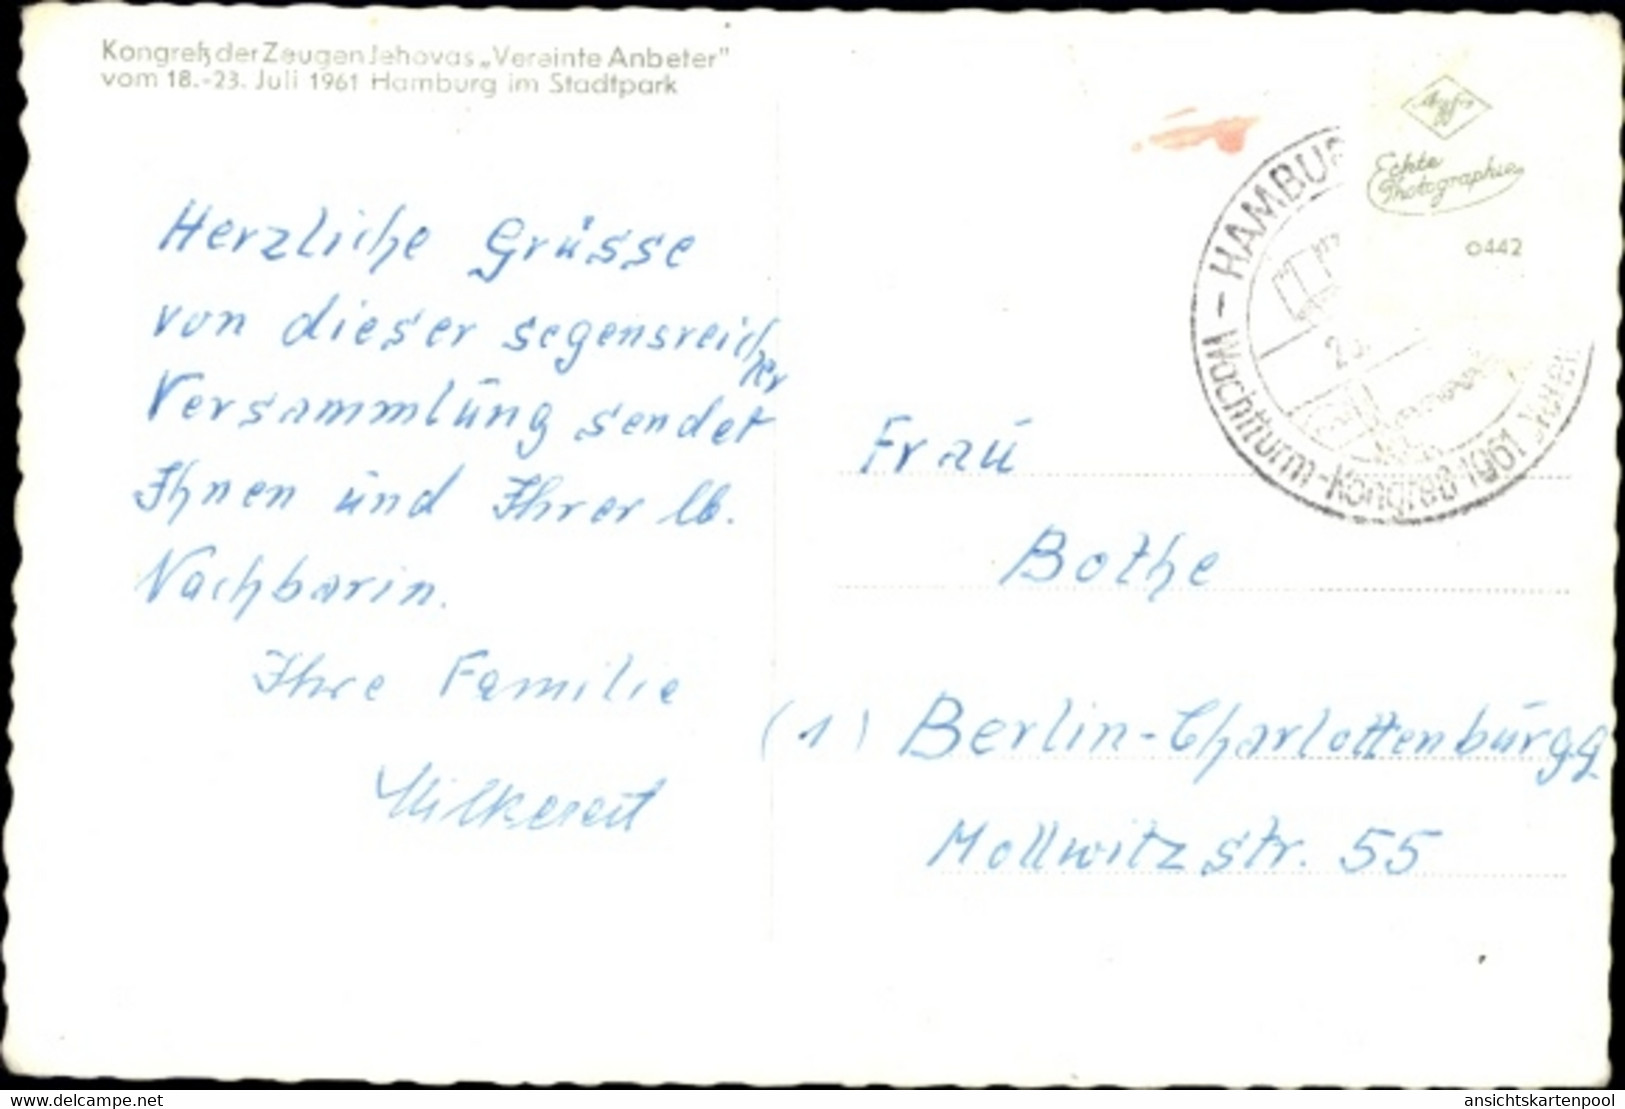 Kongreß der Zeugen Jehovas „Vereinte Anbeter"
vom 18.-23. Juli 1961 Hamburg im Stadtpark
Herzliche Grüsse
von dieser segensreicher
Versammlung sendet
Ihnen und Ihrer lb.
Nachbarin.
Ihre Familie
Agfa
Echte
Photographie
0442
- HAMBURG
Wachtturm-Kongreß 1961
Frau
Bothe
(1) Berlin-Charlottenburg 9
Mollwitzstr. 55
www.delcampe.net
ansichtskartenpool